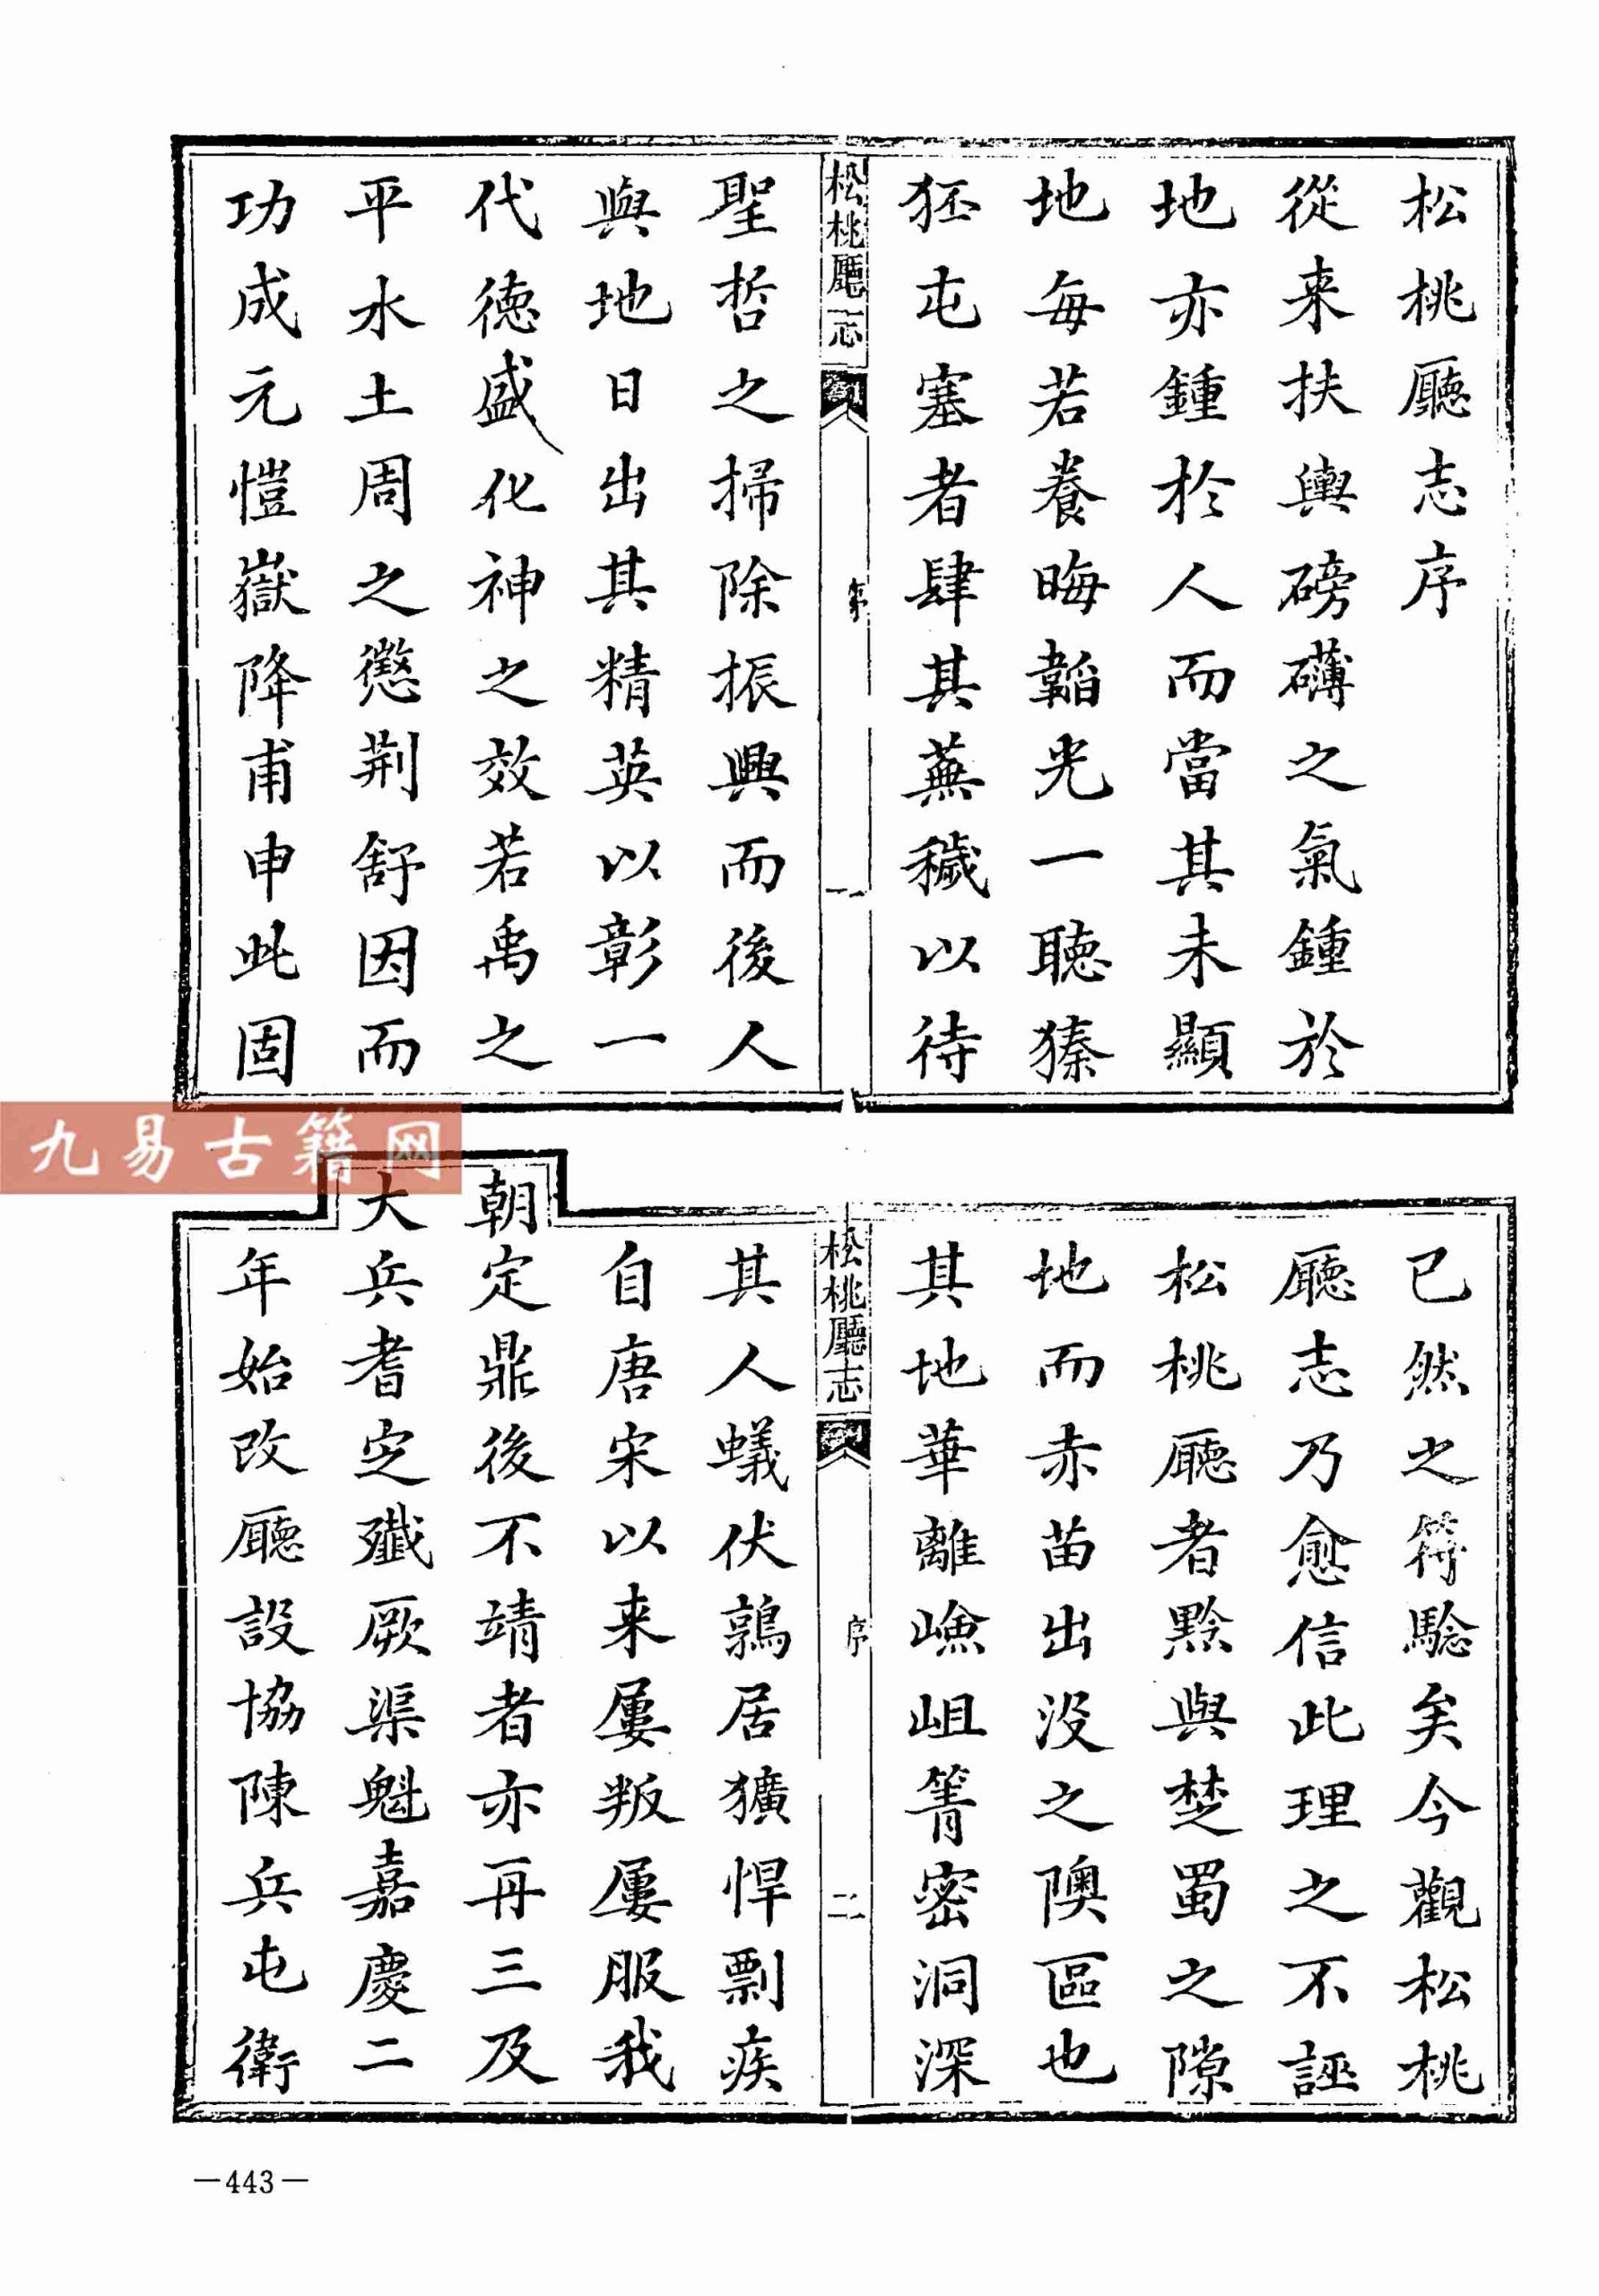 松桃廳志序
從来扶輿磅礴之氣鍾於
地亦鍾於人而當其未顯
地每若養晦韜光一聽獉
狉屯塞者肆其蕪穢以待
松桃廳志
序
一
聖哲之掃除振興而後人
與地日出其精英以彰一
代德盛化神之效若禹之
平水土周之懲荆舒因而
功成元愷嶽降甫申此固
已然之符驗矣今觀松桃
廳志乃愈信此理之不誣
松桃廳者黔與楚蜀之隙
地而赤苗出没之隩區也
其地華離嶮岨箐密洞深
松桃廳志
序
二
其人蟻伏鶉居獷悍剽疾
自唐宋以来屢叛屢服我
朝定鼎後不靖者亦再三及
大兵耆定殲厥渠魁嘉慶二
年始改廳設協陳兵屯衛
九易古籍网
—443—